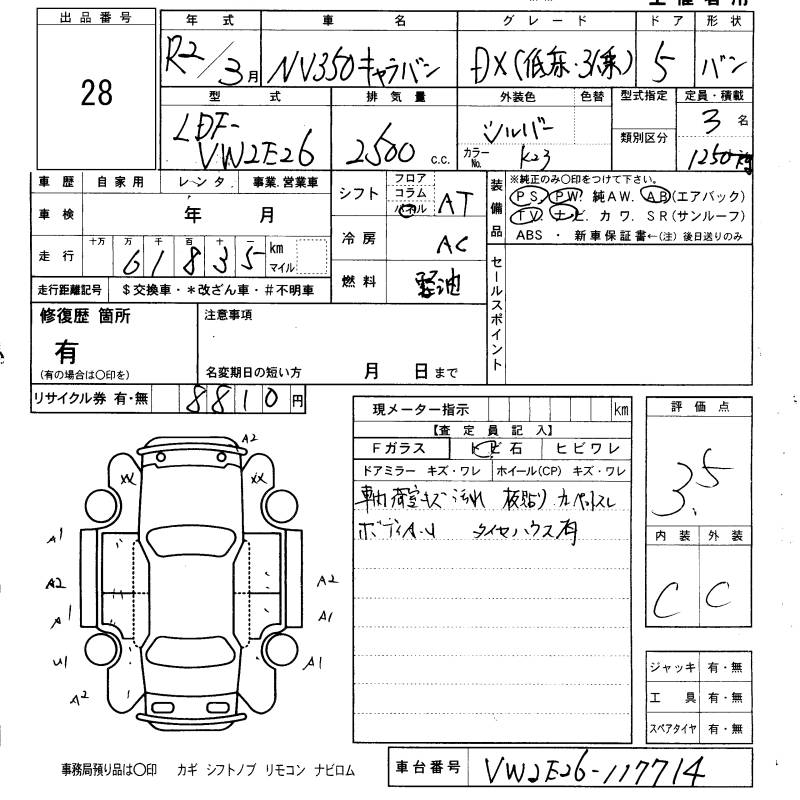 出品番号
28
年式 車名 グレード ドア 形状
R2/3月 NV350キャラバン DX(低床・3(乗) 5 バン
型式 排気量 外装色 色替 型式指定 定員・積載
LDF-VW2E26 2500 c.c. シルバー 類別区分 3名
カラーNo. K23 1250kg
車歴 自家用 レンタ 事業.営業車
車検 年 月
走行 十万 万 千 百 十 一 km マイル
6 1 8 3 5
走行距離記号 $交換車・*改ざん車・#不明車
シフト フロア コラム パネル AT
冷房 AC
燃料 軽油
装備品 ※純正のみ〇印をつけて下さい。
PS. PW. 純AW. AB(エアバック)
TV. ナビ. カワ. SR(サンルーフ)
ABS ・ 新車保証書←(注)後日送りのみ
セールスポイント
修復歴 箇所
有
(有の場合は〇印を)
注意事項
名変期日の短い方 月 日まで
リサイクル券 有・無 8810円
現メーター指示 km
【査定員記入】
Fガラス トビ石 ヒビワレ
ドアミラー キズ・ワレ ホイール(CP) キズ・ワレ
車内荷室キズ汚れ 板貼り カーペットスレ
ボディA.U タイヤハウス有
評価点
3.5
内装 外装
C C
ジャッキ 有・無
工具 有・無
スペアタイヤ 有・無
A2
XX XX
A1
A2 A2
A1 A1
U1 A1
A2
事務局預り品は〇印 カギ シフトノブ リモコン ナビロム
車台番号 VW2E26-117714